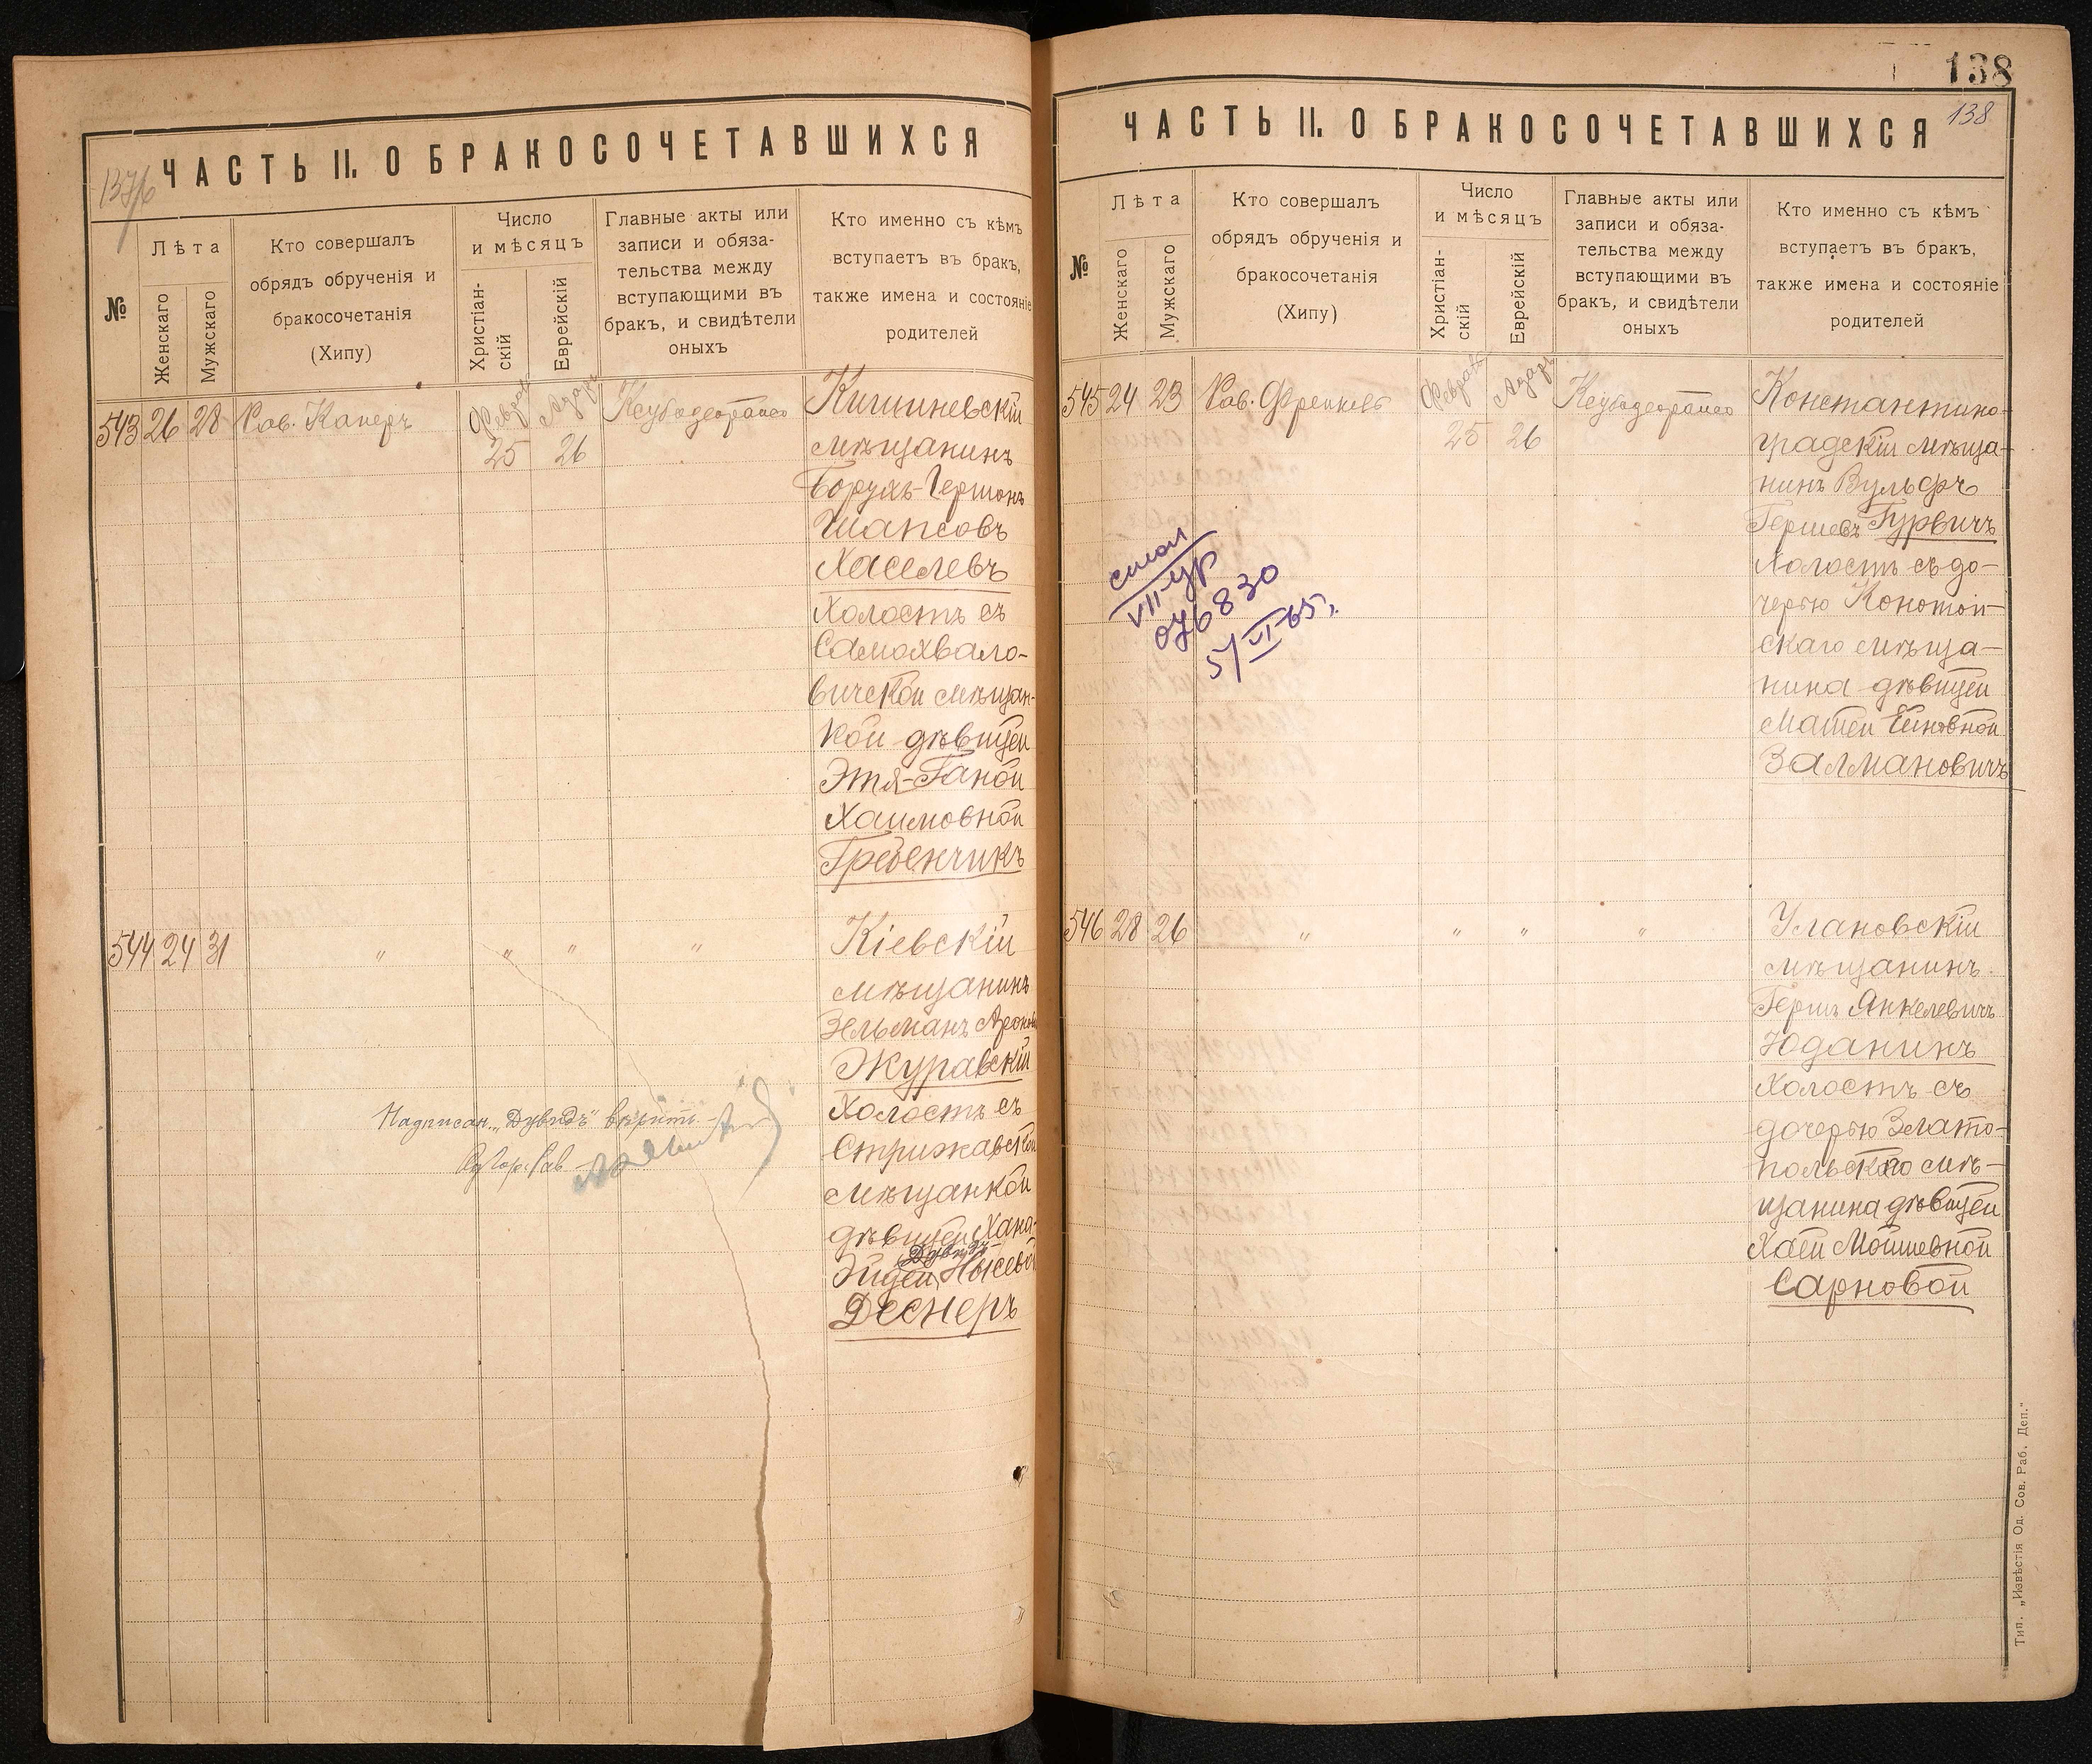 137/б
ЧАСТЬ II. О БРАКОСОЧЕТАВШИХСЯ
№
Лѣта
Женскаго
Мужскаго
Кто совершалъ
обрядъ обрученія и
бракосочетанія
(Хипу)
Число
и мѣсяцъ
Христіан-
скій
Еврейскій
Главные акты или
записи и обяза-
тельства между
вступающими въ
бракъ, и свидѣтели
оныхъ
Кто именно съ кѣмъ
вступаетъ въ бракъ,
также имена и состояніе
родителей
543 26 28 Рав. Каперъ
25 26
Кишиневскій
мѣщанинъ
Борухъ-Гершонъ
Шапсовъ
Хаселевъ
Холостъ съ
Самохвало-
вической мѣщан-
кой дѣвицей
Этя-Ганой
Хаимовной
Гребенчикъ
544 24 31 " " " "
Кіевскій
мѣщанинъ
Зельманъ Ароновъ
Журавскій
Холостъ съ
Стрижавской
мѣщанкой
дѣвицей Хана-
Дувидъ-
Эйдей Нысевой
Деснеръ
Надписан. „Дувидъ" вѣрить
138
138
ЧАСТЬ II. О БРАКОСОЧЕТАВШИХСЯ
№
Лѣта
Женскаго
Мужскаго
Кто совершалъ
обрядъ обрученія и
бракосочетанія
(Хипу)
Число
и мѣсяцъ
Христіан-
скій
Еврейскій
Главные акты или
записи и обяза-
тельства между
вступающими въ
бракъ, и свидѣтели
оныхъ
Кто именно съ кѣмъ
вступаетъ въ бракъ,
также имена и состояніе
родителей
545 24 23 Рав. Френкель
Февраль Адаръ
25 26
Константино-
градскій мѣща-
нинъ Вульфъ
Гершевъ Гурвичъ
Холостъ съ до-
черью Конотоп-
скаго мѣща-
нина дѣвицей
Матей
Залмановичъ
VII-ур
076830
5/VI-65г.
546 28 26 " " " "
Улановскій
мѣщанинъ
Гершъ Янкелевичъ
Юданинъ
Холостъ съ
дочерью Злато-
польскаго мѣ-
щанина дѣвицей
Хаей Мошневной
Сарновой
Тип. „Извѣстія Од. Сов. Раб. Деп."